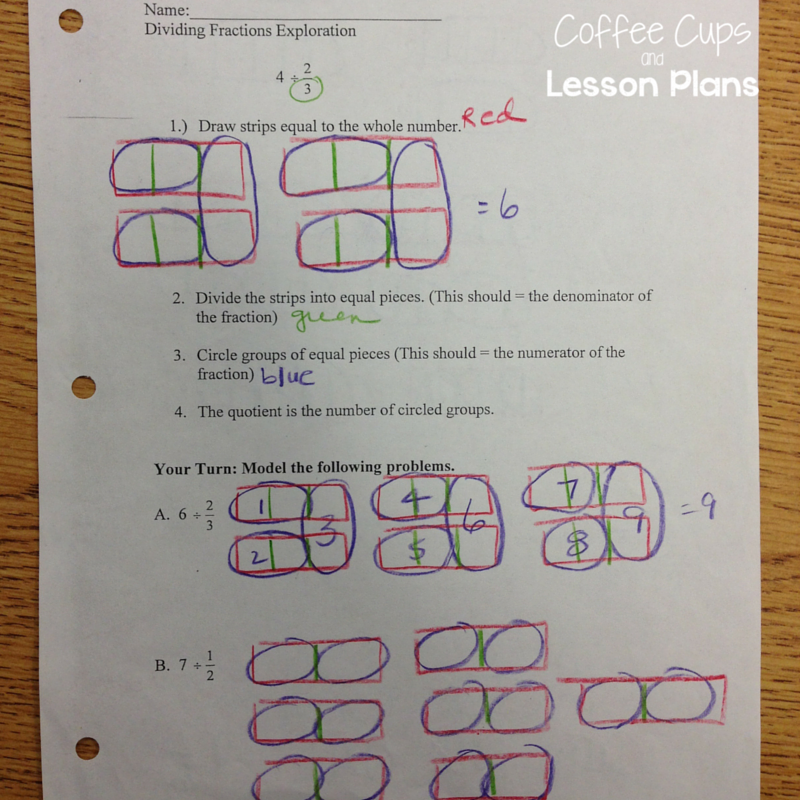 Name:
Dividing Fractions Exploration
Coffee Cups
and
Lesson Plans
4 ÷ 2/3
1.) Draw strips equal to the whole number. Red
= 6
2. Divide the strips into equal pieces. (This should = the denominator of
the fraction) green
3. Circle groups of equal pieces (This should = the numerator of the
fraction) blue
4. The quotient is the number of circled groups.
Your Turn: Model the following problems.
A. 6 ÷ 2/3 1 2 3 4 5 6 7 8 9 = 9
B. 7 ÷ 1/2